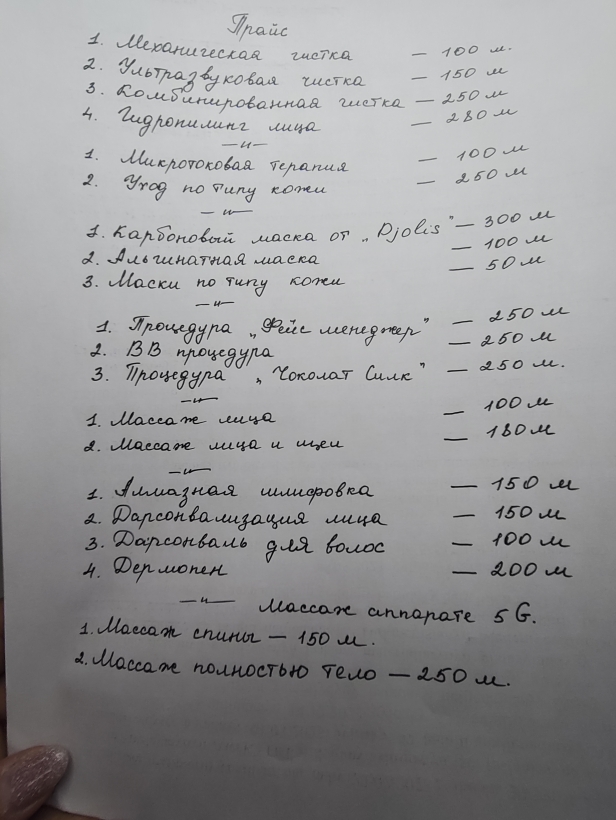 Прайс
1. Механическая чистка — 100 м.
2. Ультразвуковая чистка — 150 м
3. Комбинированная чистка — 250 м
4. Гидропилинг лица — 280 м
—"—
1. Микротоковая терапия — 100 м
2. Уход по типу кожи — 250 м
—"—
1. Карбоновый маска от „Djolis" — 300 м
2. Альгинатная маска — 100 м
3. Маски по типу кожи — 50 м
—"—
1. Процедура „Фейс менеджер" — 250 м
2. BB процедура — 250 м
3. Процедура „Чоколат Силк" — 250 м.
—"—
1. Массаж лица — 100 м
2. Массаж лица и шеи — 180 м
—"—
1. Алмазная шлифовка — 150 м
2. Дарсонвализация лица — 150 м
3. Дарсонваль для волос — 100 м
4. Дермопен — 200 м
—"— Массаж аппарате 5 G.
1. Массаж спины — 150 м.
2. Массаж полностью тело — 250 м.